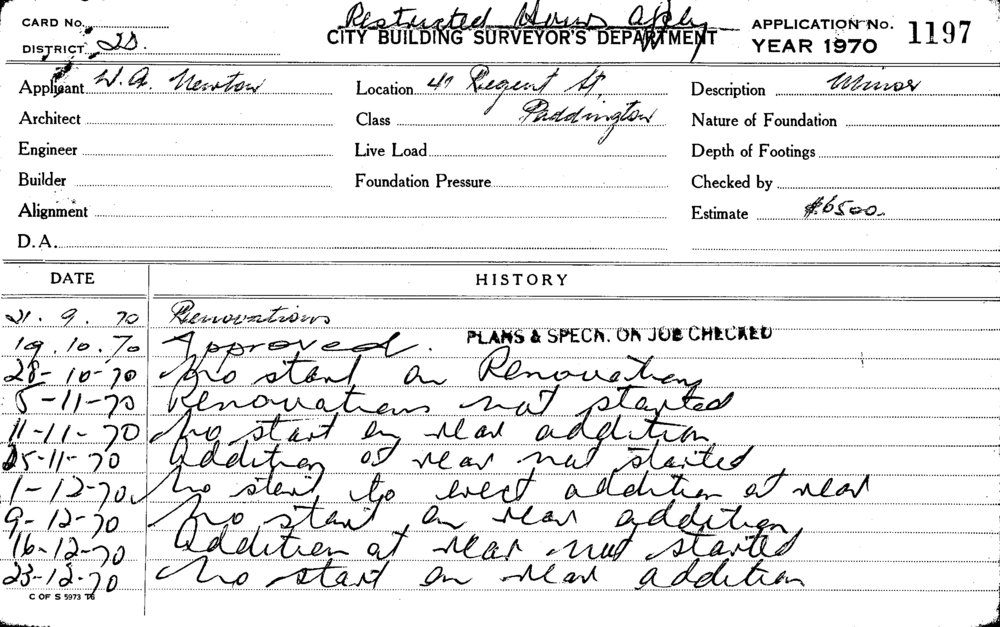 Restricted Hours Apply
CARD No.
CITY BUILDING SURVEYOR'S DEPARTMENT
APPLICATION No. 1197
DISTRICT 2D.
YEAR 1970
Applicant W. A. Newton
Location 47 Regent St,
Description Minor
Architect
Class Paddington
Nature of Foundation
Engineer
Live Load
Depth of Footings
Builder
Foundation Pressure
Checked by
Alignment
Estimate $6500.
D.A.
DATE HISTORY
21. 9. 70 Renovations
19.10.70 Approved. PLANS & SPECN. ON JOB CHECKED
28-10-70 No start on Renovations
5-11-70 Renovations not started
11-11-70 No start on rear addition
25-11-70 Addition at rear not started
1-12-70 No start to erect addition at rear
9-12-70 No start on rear addition
16-12-70 Addition at rear not started
23-12-70 No start on rear addition
C OF S 5973 T6